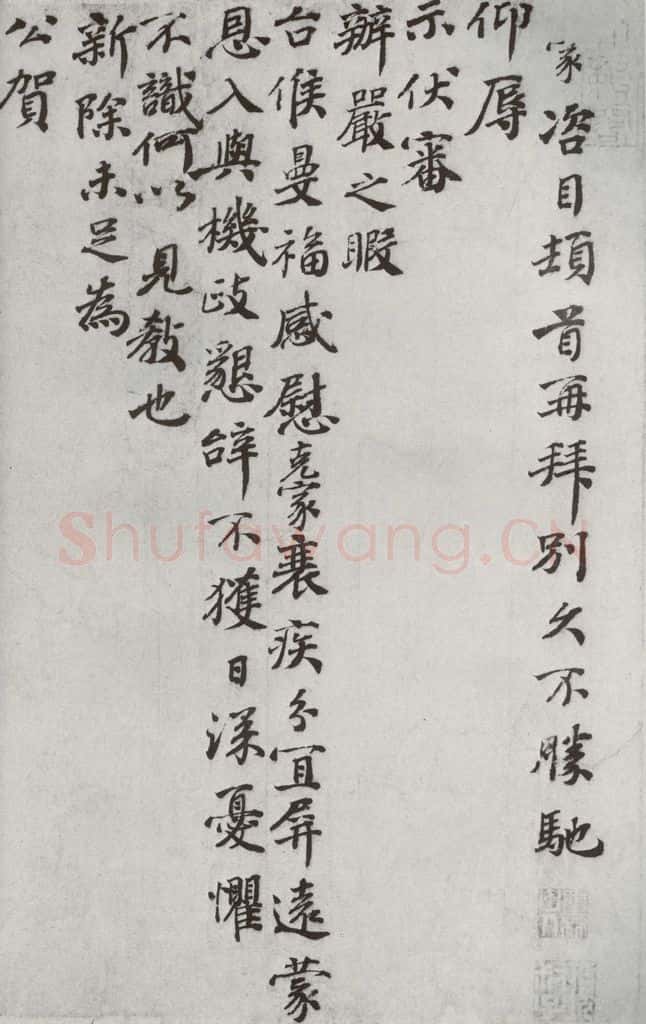 家咨目頓首再拜別久不勝馳
仰辱
示伏審
辦嚴之暇
台候曼福感慰克家衰疾分宜屏遠蒙
恩入與機政懇辭不獲日深憂懼
不識何以見教也
新除未足為
公賀
Shufawang.CN